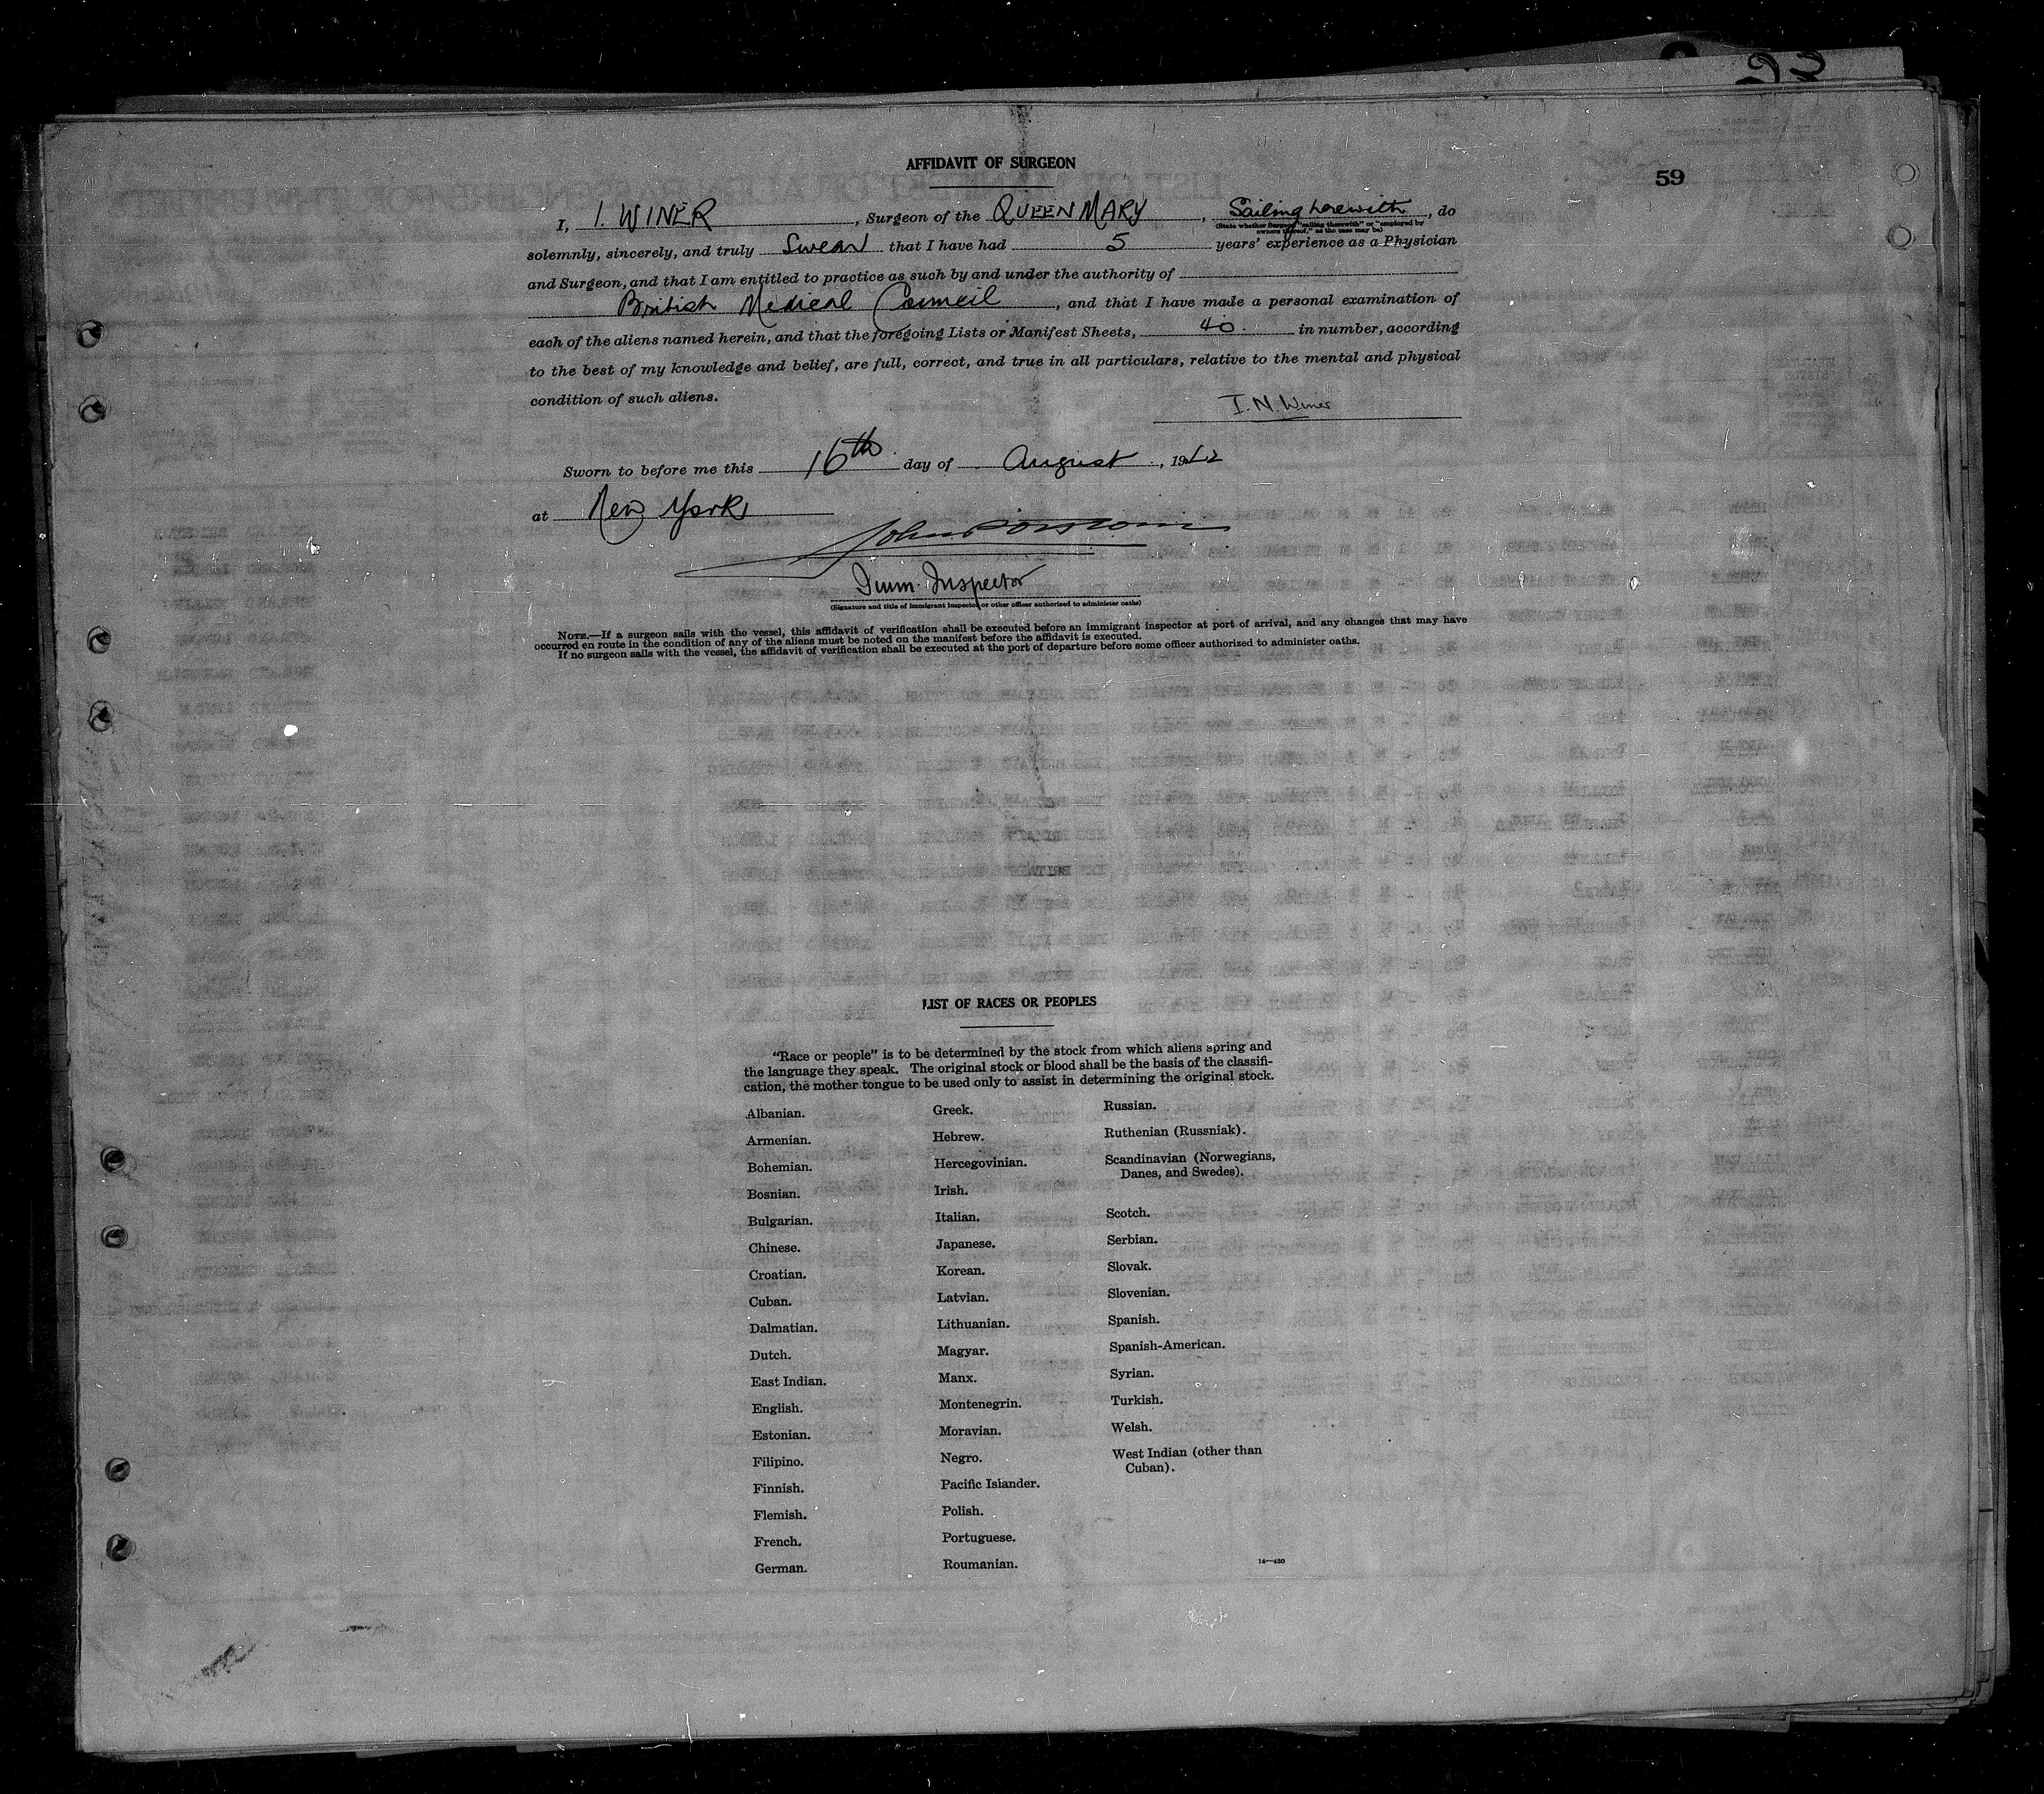 AFFIDAVIT OF SURGEON
59
I, I. WINER, Surgeon of the QUEEN MARY, Sailing herewith, do
(State whether Surgeon "sailing therewith" or "employed by
owners thereof," as the case may be)
solemnly, sincerely, and truly Swear that I have had 5 years' experience as a Physician
and Surgeon, and that I am entitled to practice as such by and under the authority of
British Medical Council, and that I have made a personal examination of
each of the aliens named herein, and that the foregoing Lists or Manifest Sheets, 40 in number, according
to the best of my knowledge and belief, are full, correct, and true in all particulars, relative to the mental and physical
condition of such aliens.
I. N. Winer
Sworn to before me this 16th day of August, 1942
at New York
John
Imm. Inspector
(Signature and title of immigrant inspector or other officer authorized to administer oaths)
NOTE.—If a surgeon sails with the vessel, this affidavit of verification shall be executed before an immigrant inspector at port of arrival, and any changes that may have
occurred en route in the condition of any of the aliens must be noted on the manifest before the affidavit is executed.
If no surgeon sails with the vessel, the affidavit of verification shall be executed at the port of departure before some officer authorized to administer oaths.
LIST OF RACES OR PEOPLES
"Race or people" is to be determined by the stock from which aliens spring and
the language they speak. The original stock or blood shall be the basis of the classifi-
cation, the mother tongue to be used only to assist in determining the original stock.
Albanian.
Armenian.
Bohemian.
Bosnian.
Bulgarian.
Chinese.
Croatian.
Cuban.
Dalmatian.
Dutch.
East Indian.
English.
Estonian.
Filipino.
Finnish.
Flemish.
French.
German.
Greek.
Hebrew.
Hercegovinian.
Irish.
Italian.
Japanese.
Korean.
Latvian.
Lithuanian.
Magyar.
Manx.
Montenegrin.
Moravian.
Negro.
Pacific Islander.
Polish.
Portuguese.
Roumanian.
Russian.
Ruthenian (Russniak).
Scandinavian (Norwegians,
Danes, and Swedes).
Scotch.
Serbian.
Slovak.
Slovenian.
Spanish.
Spanish-American.
Syrian.
Turkish.
Welsh.
West Indian (other than
Cuban).
14—430